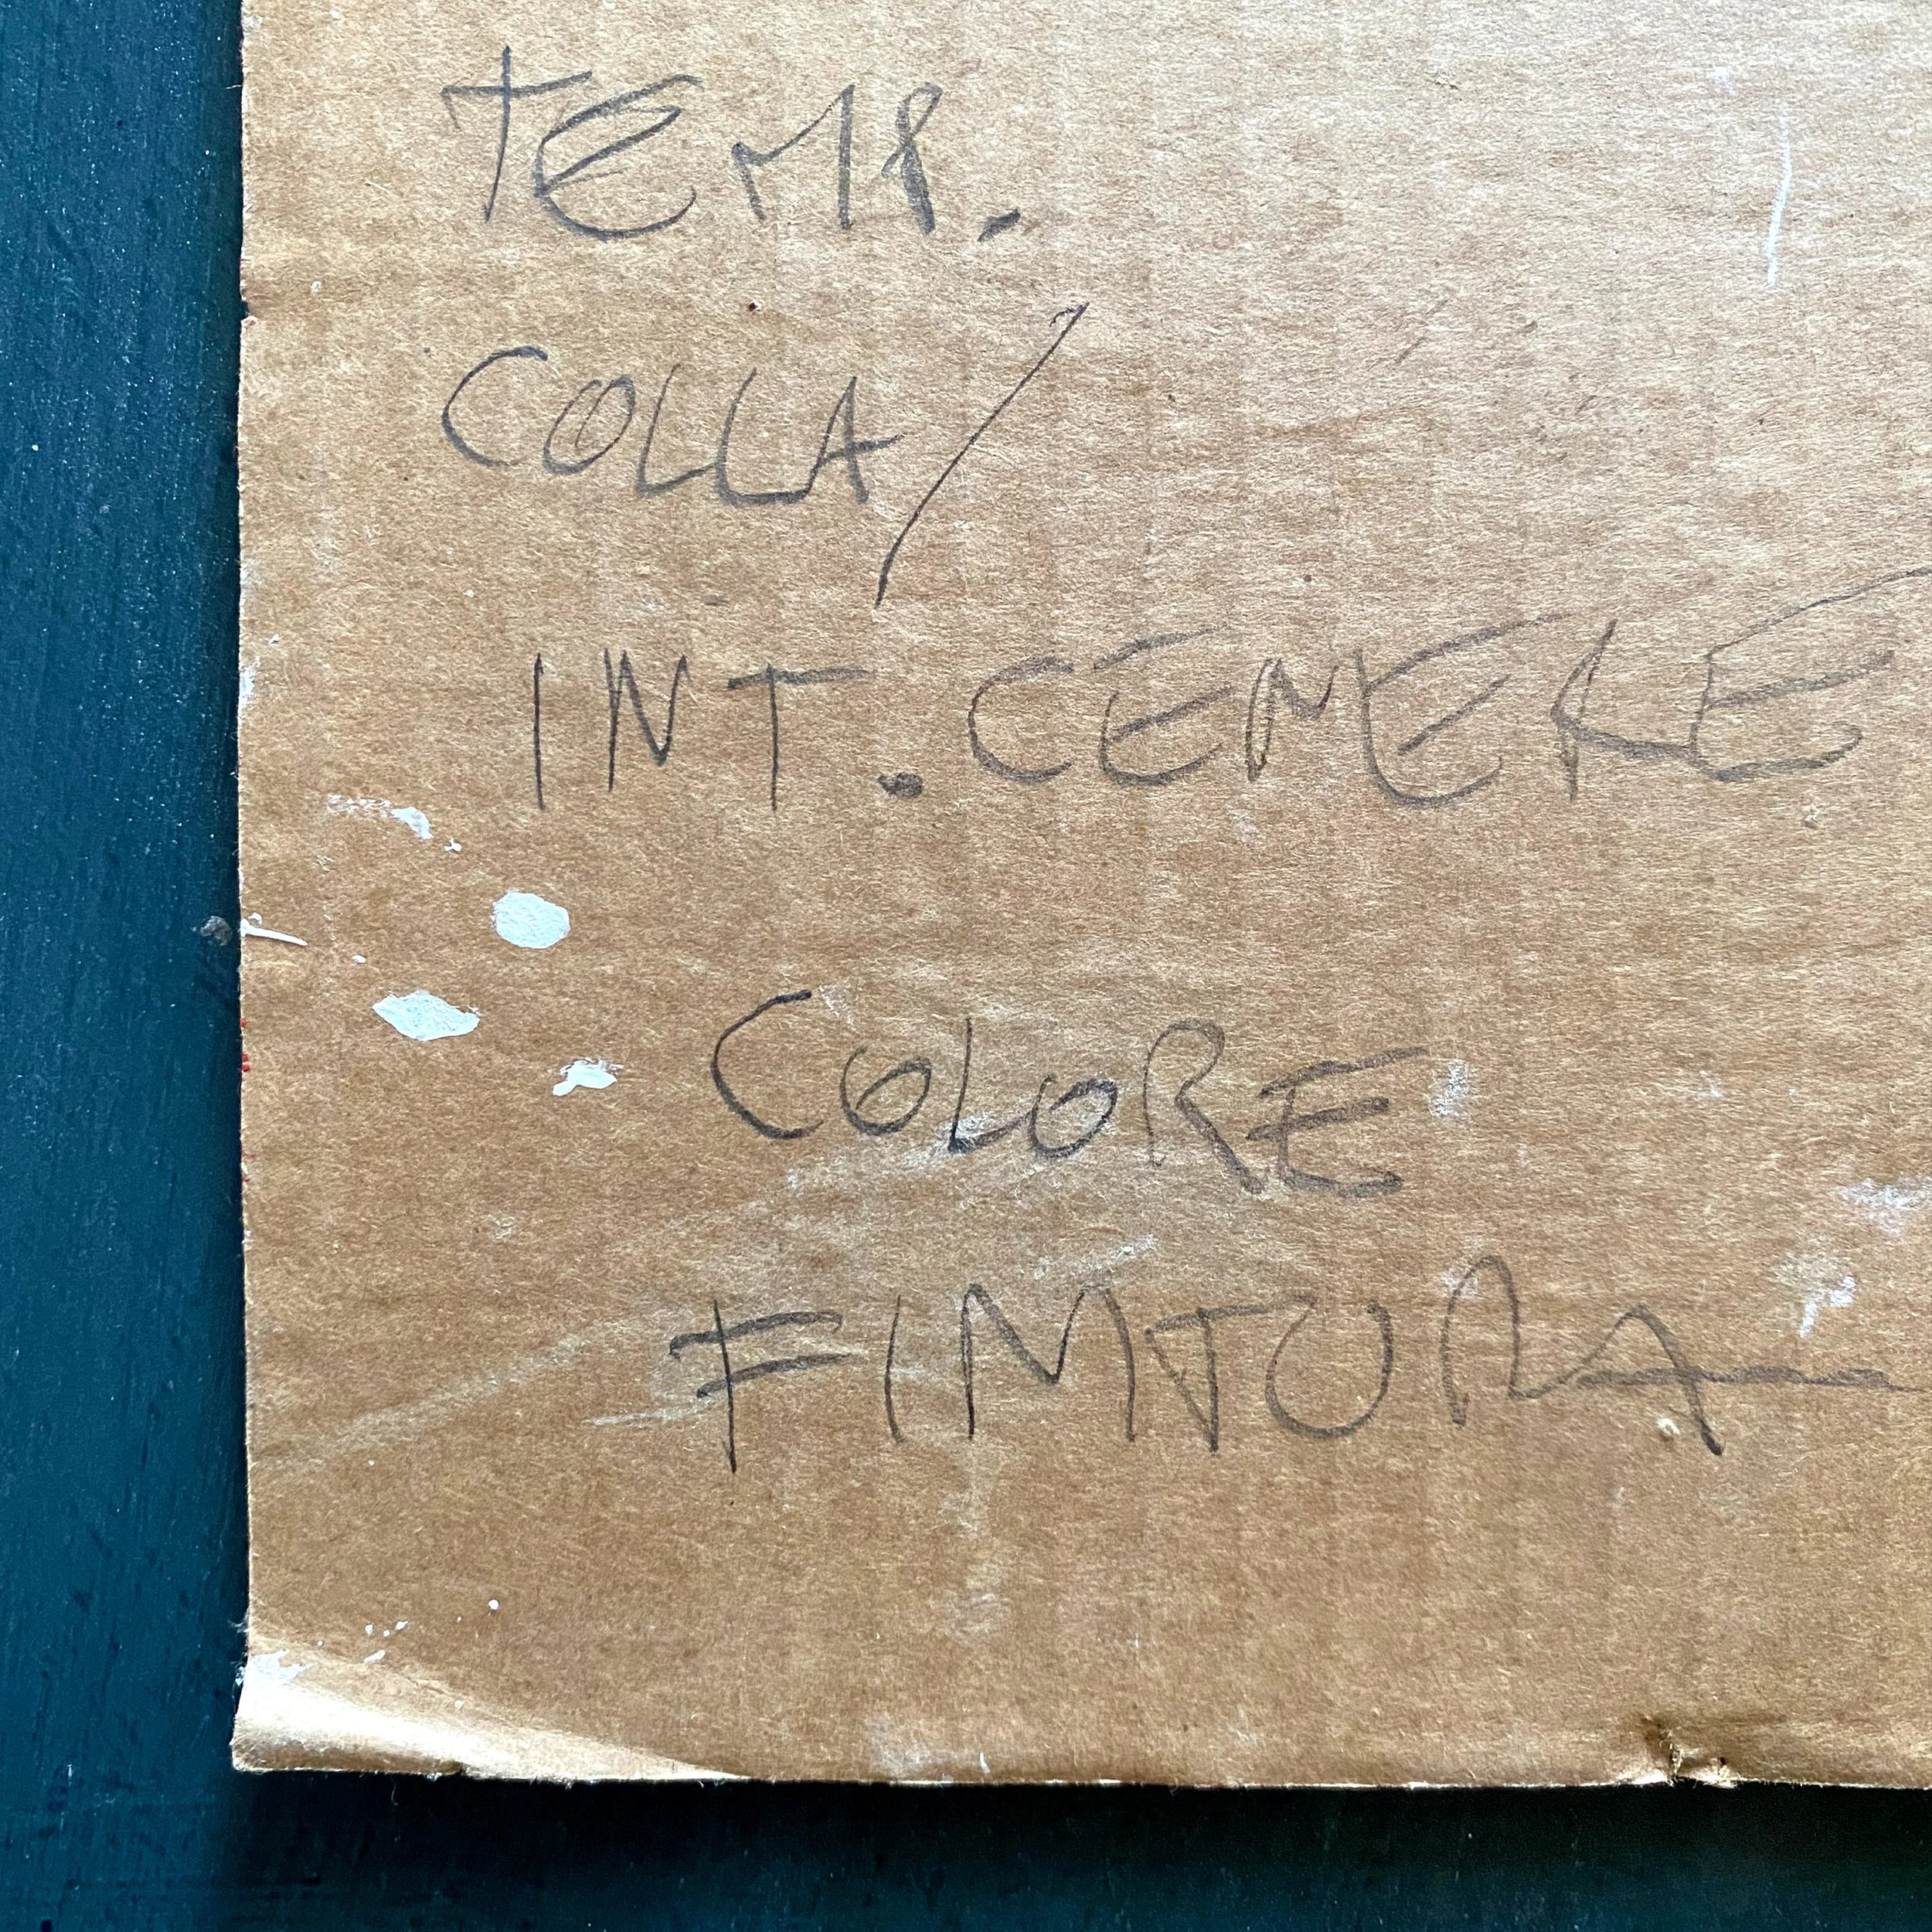 TEMP.
COLLA/
INT. CENERE
COLORE
FINTURA